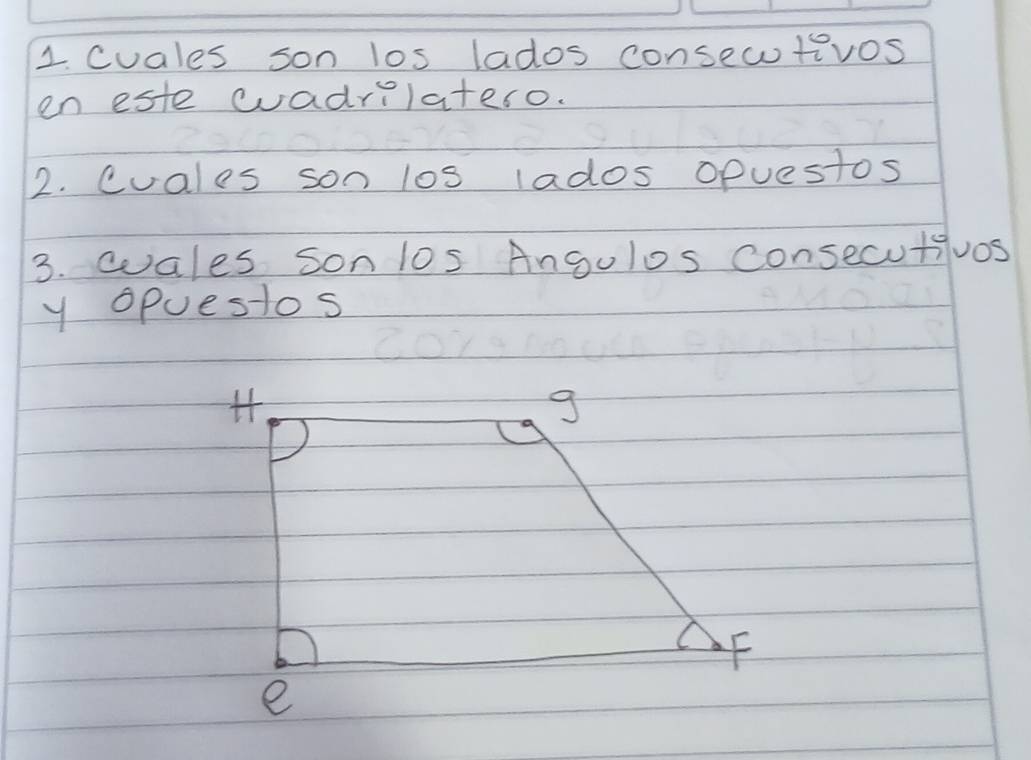 1. Cuales son los lados consecutivos
en este cuadrilatero.
2. Cuales son los lados opuestos
3. cuales son los Angulos consecutivos
y opuestos
H g
e F